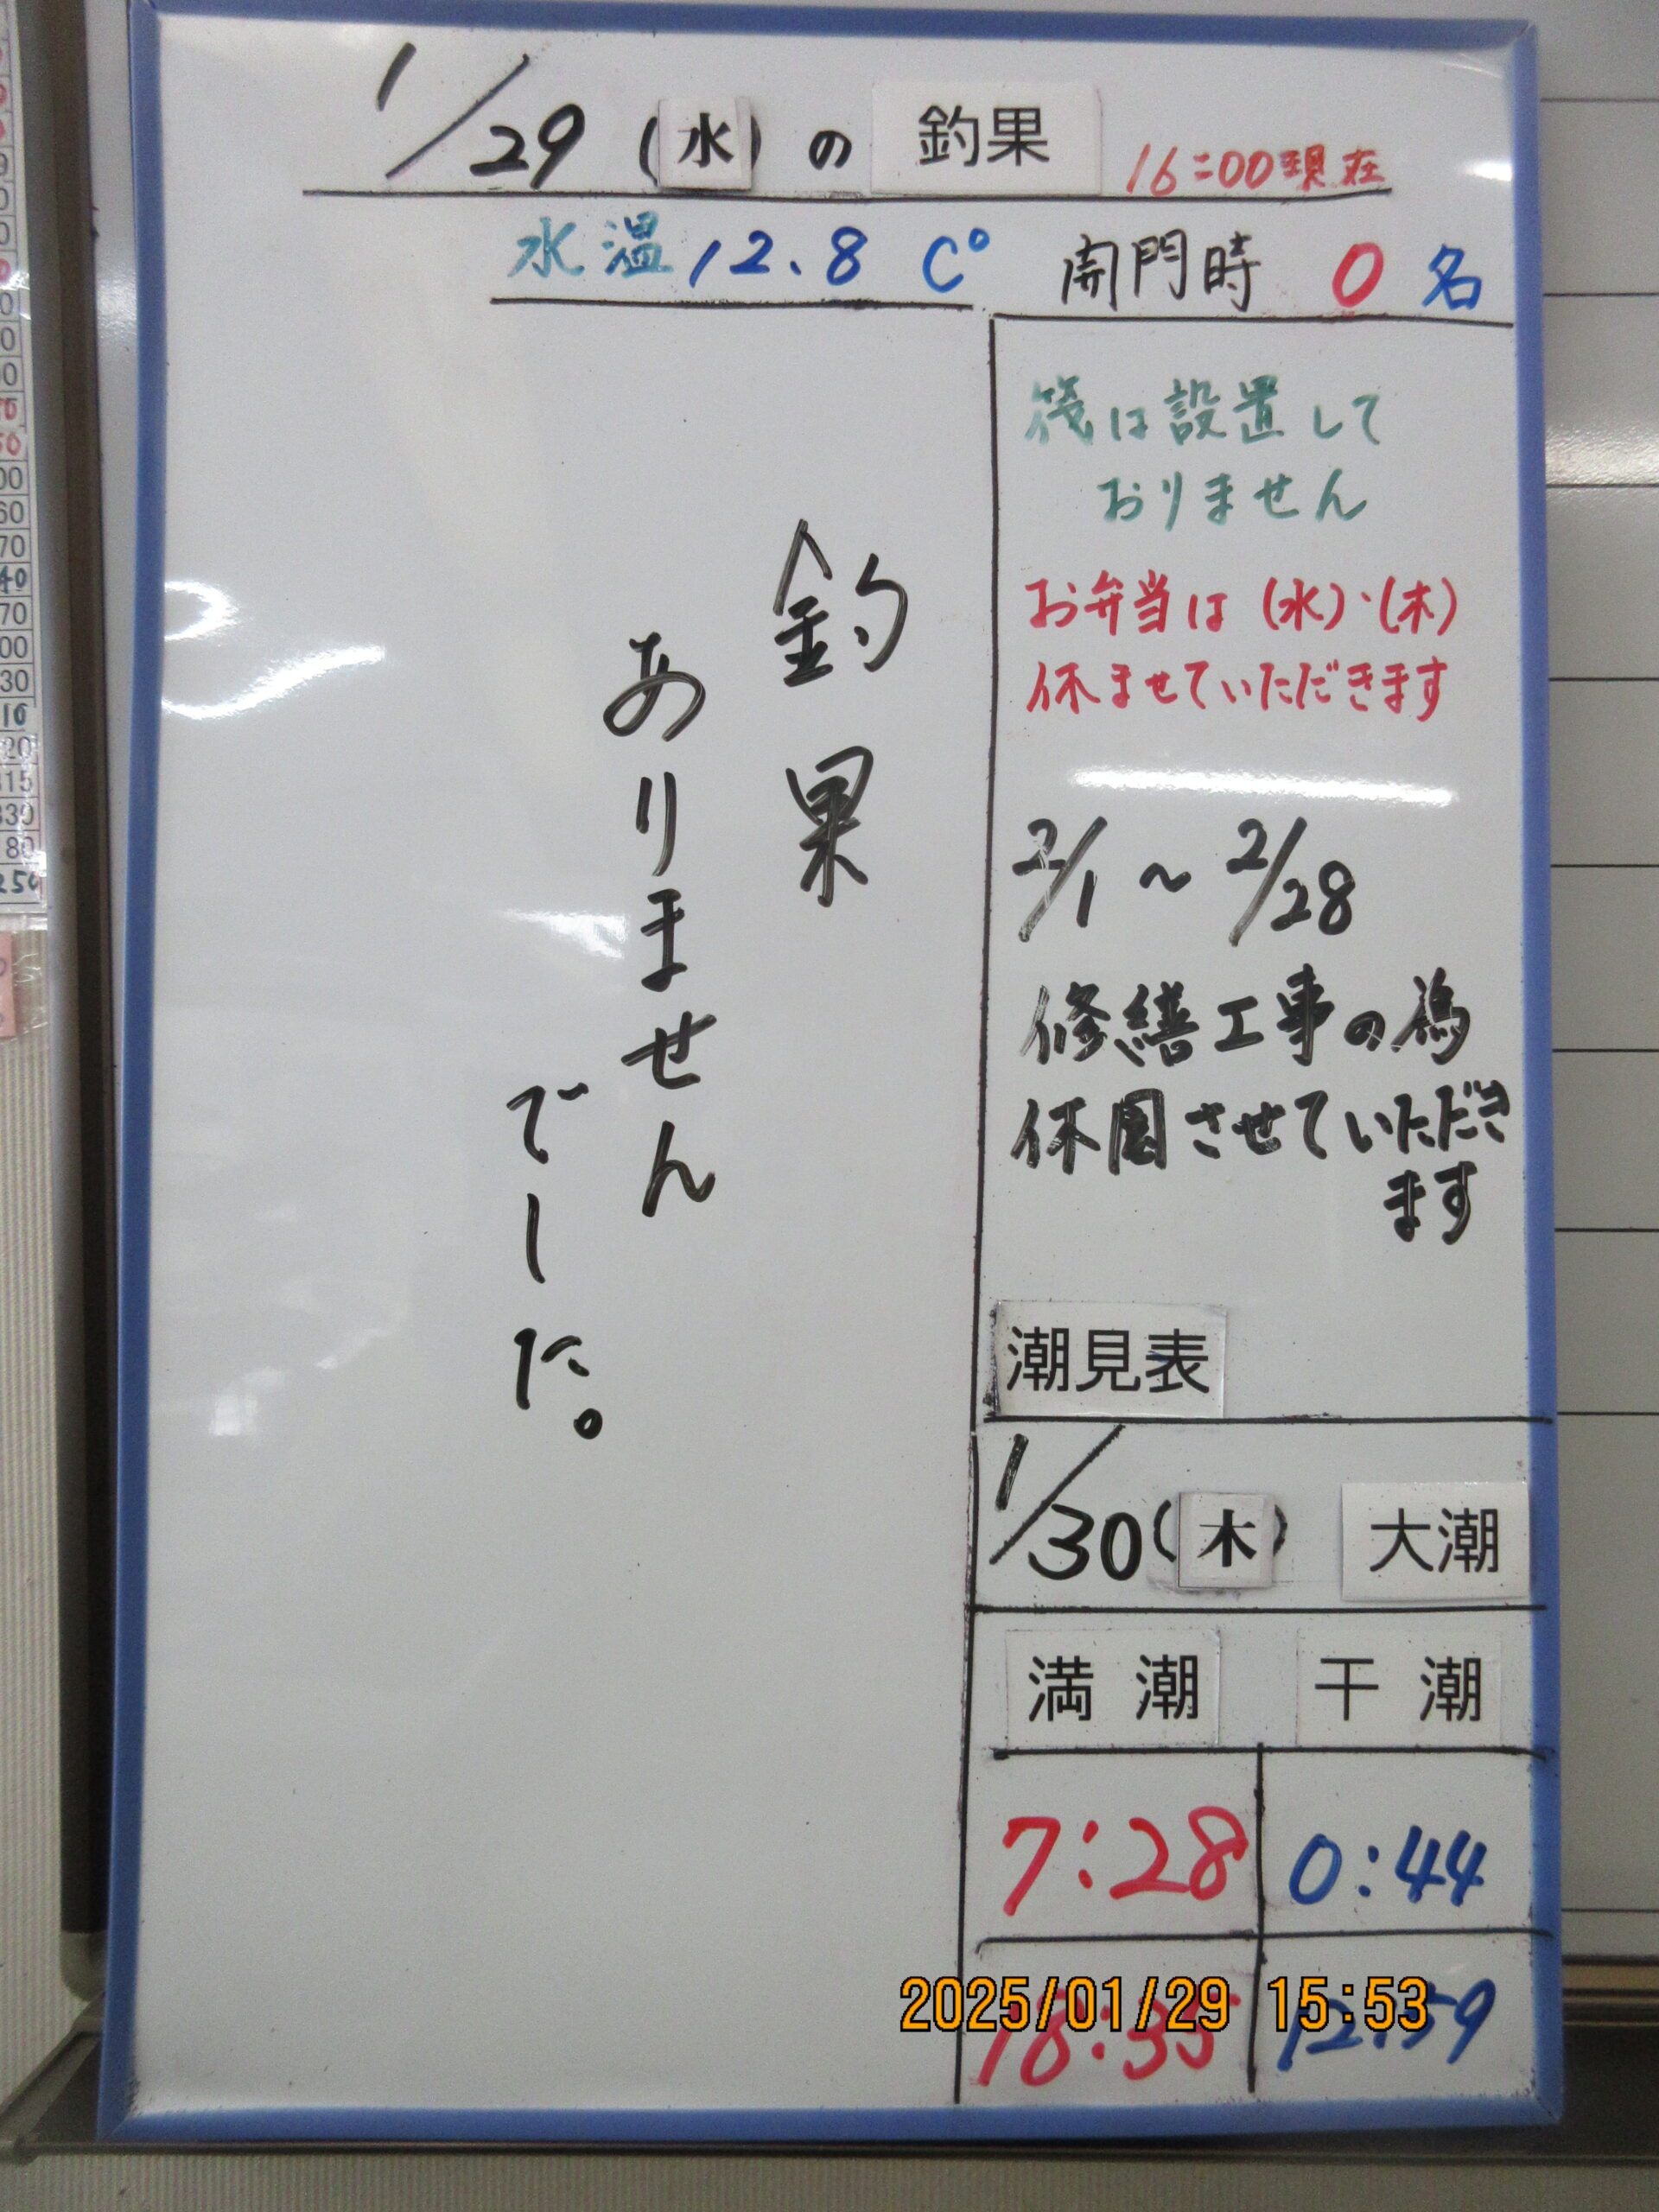 1/29（水）の 釣果 16:00現在
水温 12.8 C° 開門時 0 名
釣果
ありません
でした。
筏は設置して
おりません
お弁当は（水）・（木）
休ませていただきます
2/1 〜 2/28
修繕工事の為
休園させていただき
ます
潮見表
1/30（木） 大潮
満潮 干潮
7:28 0:44
18:35 12:59
2025/01/29 15:53